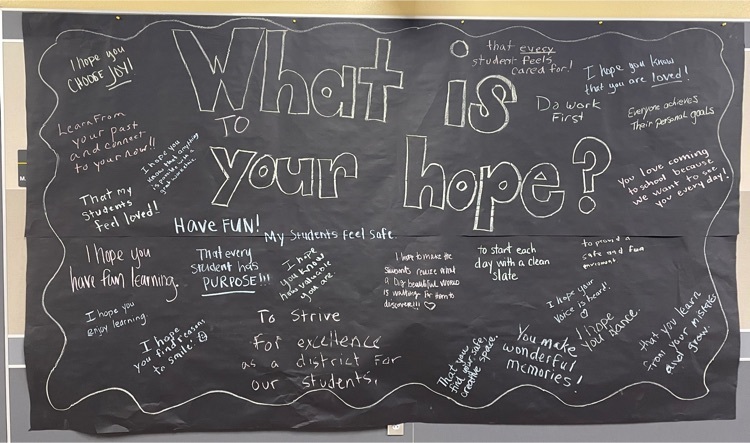 What is
your hope?
I hope you
CHOOSE JOY!
Learn From
your past
and connect
to your now!!
TO
I hope you
know that anything
is possible with a
that every
student feels
cared for!
Do work
First
I hope you know
that you are loved!
Everyone achieves
Their personal goals
You love coming
to school because
we want to see
you every day!
That my
students
feel loved!
HAVE FUN!
My Students Feel Safe.
I hope you
have fun learning.
That every
student has
PURPOSE!!!
I hope
you know
how valuable
you are
I hope to make the
students realize what
a big beautiful world
is waiting for them to
discover!!!
to start each
day with a clean
slate
to provide a
safe and fun
I hope you
enjoy learning
I hope
you find reasons
to smile
To Strive
For excellence
as a district for
our students.
That you
find your safe,
creative space.
You make
wonderful
memories!
I hope your
voice is heard.
I hope
you dance.
that you learn
from your mistakes
and grow.